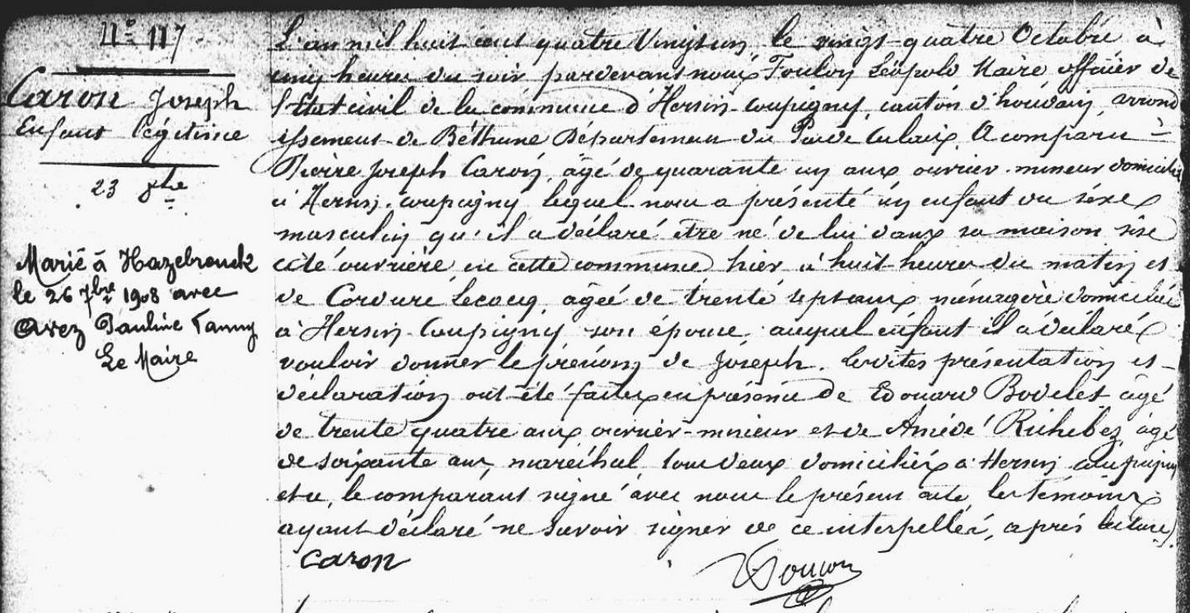 N° 117
Caron Joseph
Enfant légitime
23 8bre
Marié à Hazebrouck
le 26 7bre 1908 avec
Avez Pauline Fanny
Le Maire
L'an mil huit cent quatre vingt un, le vingt quatre Octobre à
cinq heures du soir pardevant nous Toulon Léopold Maire officier de
l'Etat civil de la commune d'Hersin-coupigny, canton d'houdain, arrond
issement de Béthune Département du Pas de Calais, A comparu
Pierre Joseph Caron, âgé de quarante un ans ouvrier mineur domicilié
à Hersin-coupigny lequel nous a présenté un enfant du séxe
masculin qu'il a déclaré être né de lui dans sa maison sise
cité ouvrière en cette commune hier à huit heures du matin et
de Lecocq, âgée de trente sept ans ménagère domiciliée
à Hersin-Coupigny son épouse auquel enfant il a déclaré
vouloir donner le prénom de Joseph. Lesdites présentation et
déclaration ont été faites en présence de Edouard Bodelet âgé
de trente quatre ans ouvrier-mineur et de Amédé Richebez, âgé
de soixante ans, maréchal tous deux domiciliés à Hersin coupigny
et a, le comparant signé avec nous le présent acte les témoins
ayant déclaré ne savoir signer de ce interpellés, après lecture.
Caron